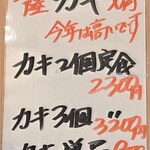 産 カキ 入荷
今年は高いです
カキ2個定食
2300円
カキ3個 〃
3200円
カキ単品